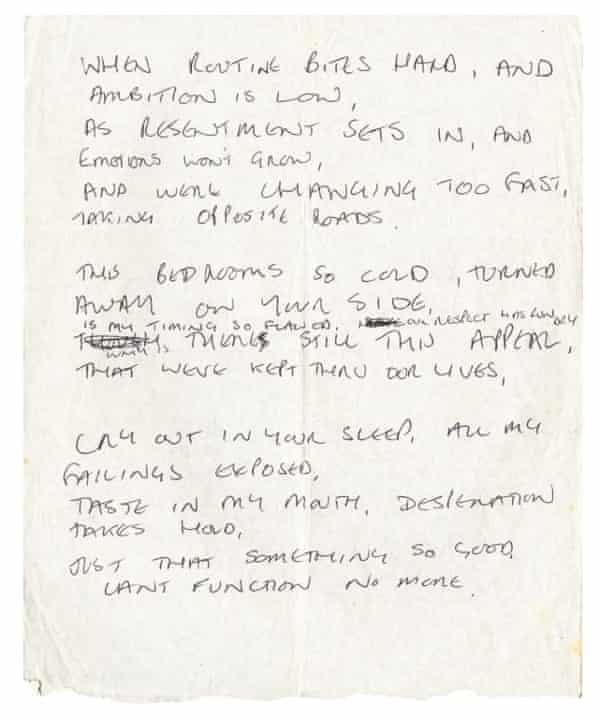 WHEN ROUTINE BITES HARD, AND
AMBITION IS LOW,
AS RESENTMENT SETS IN, AND
EMOTIONS WON'T GROW,
AND WERE CHANGING TOO FAST,
TAKING OPPOSITE ROADS.
THIS BEDROOMS SO COLD, TURNED
AWAY ON YOUR SIDE,
IS MY TIMING SO FLAWED. OUR RESPECT HAS RUN DRY
THERES STILL THIS APPEAL,
WHY IS
THAT WE'VE KEPT THRU OUR LIVES,
CRY OUT IN YOUR SLEEP, ALL MY
FAILINGS EXPOSED,
TASTE IN MY MOUTH, DESPERATION
TAKES HOLD,
JUST THAT SOMETHING SO GOOD
CANT FUNCTION NO MORE.